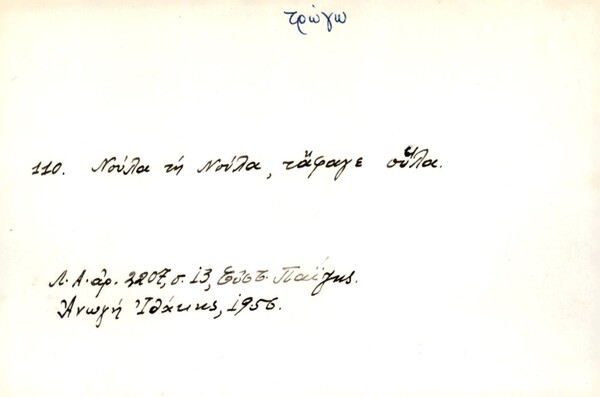 τρώγω
110. Νούλα τή Νούλα, τἄφαγε οὗλα.
Λ.Α. ἀρ. 2207, σ. 13, Εὐστ. Παΐζης.
Ἀνωγή Ἰθάκης, 1956.